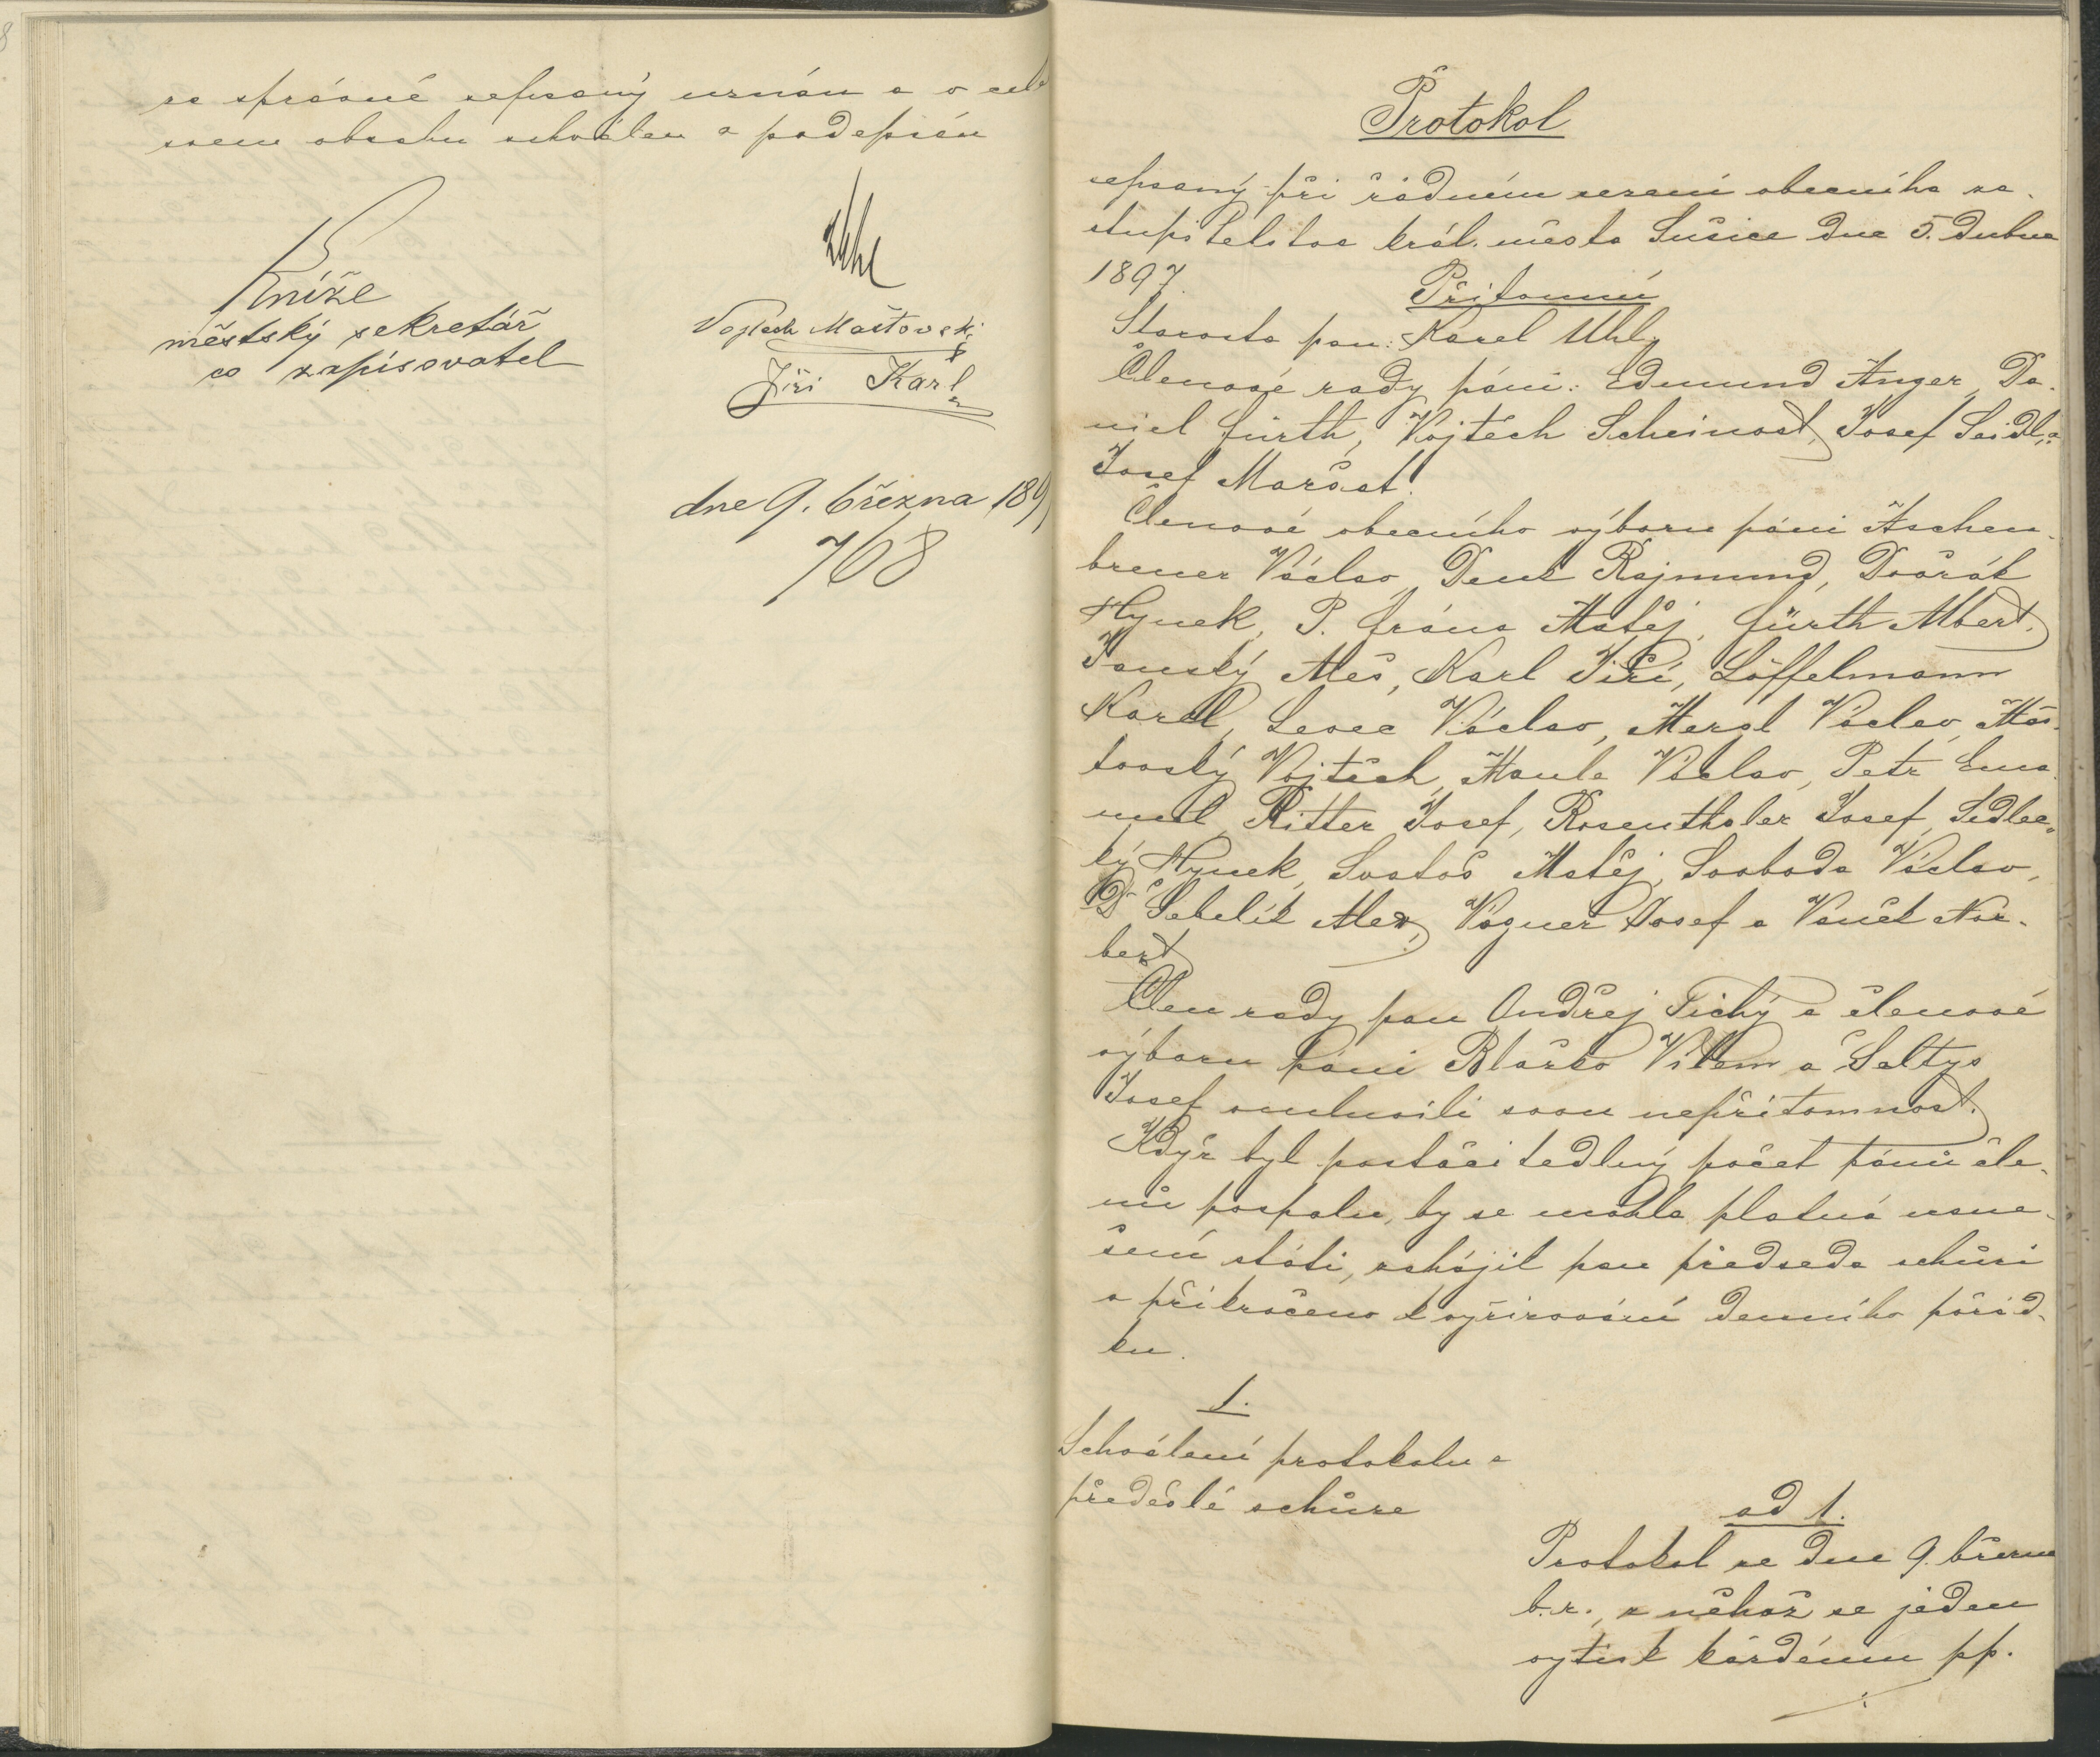 za správně sepsaný uznán a v cel
svém obsahu schválen a podepsán
Kníže
městský sekretář
co zapisovatel
Uhl
Vojtěch Maštovský
Jiří Karl
dne 9. března 189
768
Protokol
sepsaný při řádném sezení obecního za-
stupitelstva král. města Sušice dne 5. dubna
1897.
Přítomni
Starosta pan: Karel Uhl,
Členové rady páni: Edmund Anger, Da-
niel Fürth, Vojtěch Scheinost, Josef Seidl, a
Josef Marást.
Členové obecního výboru páni Aschen-
brener Václav, Dent Rajmund, Dvořák
Hynek, P. Frána Matěj, Fürth Albert,
Janský Aleš, Karl Jiří, Löffelmann
Karel, Levec Václav, Mersl Václav, Maš-
tovský Vojtěch, Maule Václav, Petr Ema-
nuel, Ritter Josef, Rosenthaler Josef, Sedlec-
ký Hynek, Svatoš Matěj, Svoboda Václav,
Dr Šebelík Alex, Vágner Josef a Vaněk Nor-
bert
Člen rady pan Ondřej Tichý a členové
výboru páni Blažko Vilém a Šaltys
Josef omluvili svou nepřítomnost.
Když byl postačitedlný počet pánů čle-
nů pospolu, by se mohla platná usne-
šení státi, zahájil pan předseda schůzi
a přikročeno k vyřizování denního pořád-
ku.
1.
Schválení protokolu z
předešlé schůze
ad 1.
Protokol ze dne 9. března
b.r., z něhož se jeden
výtisk každému pp.